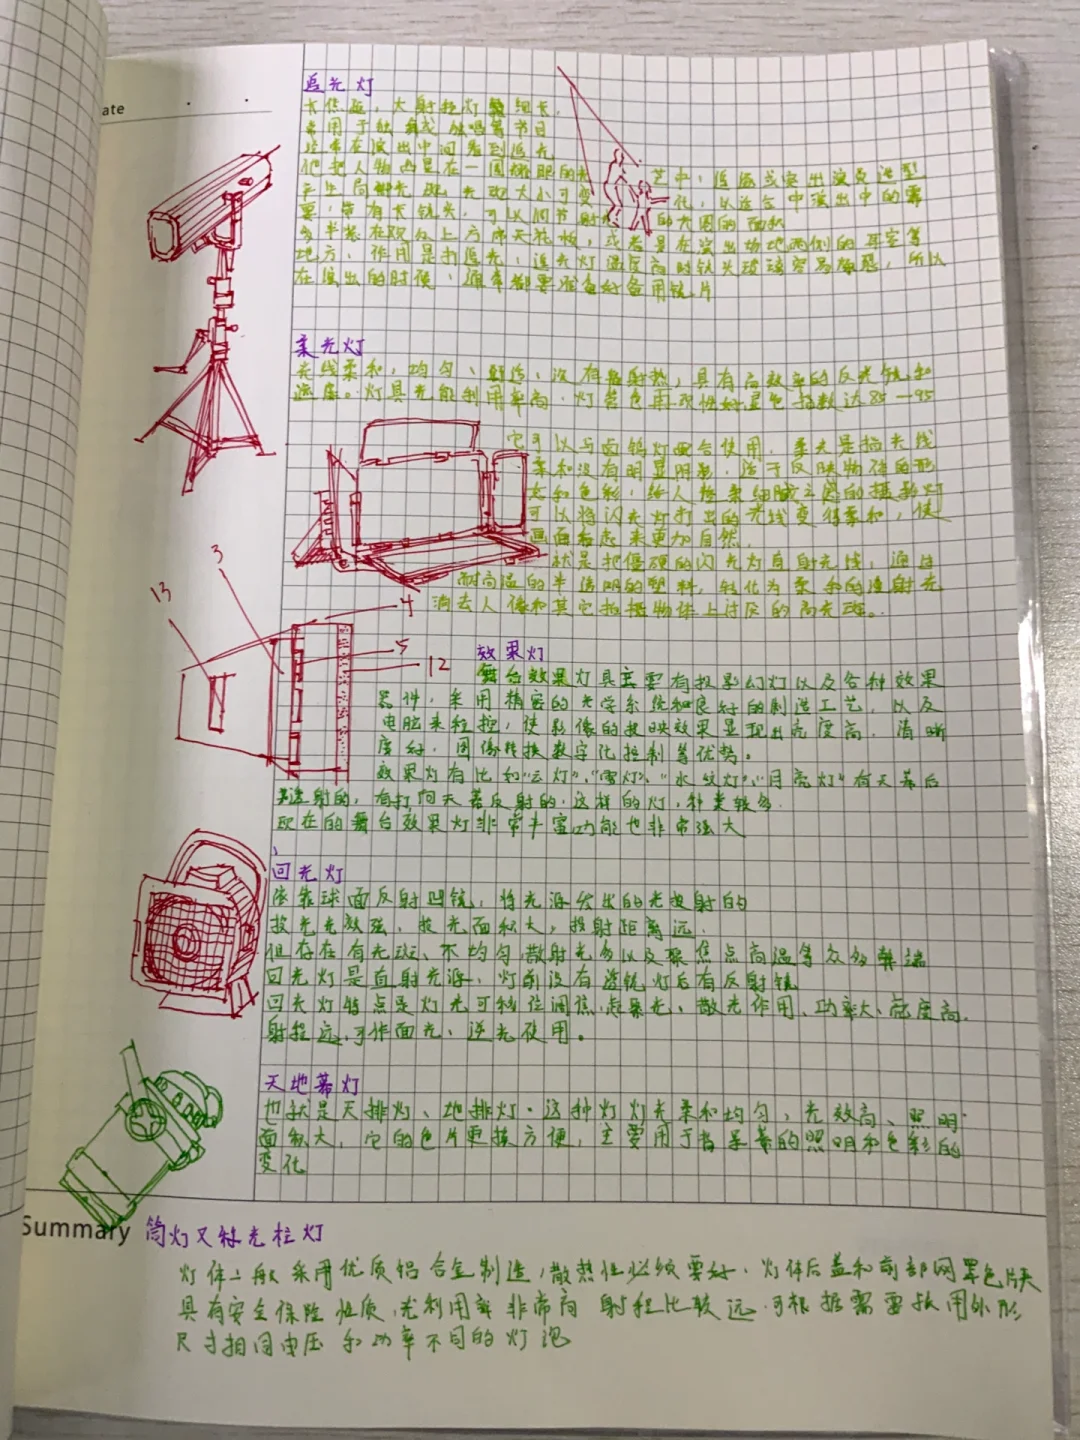 ate
追光灯
长焦距，大射程灯 细长，
常用于歌舞或独唱等节目
经常在演出中间看到追光
他把人物凸显在一圈耀眼的光芒中，追随或突出演员造型
产生简 光斑，光斑大小可变化，以适合中演出中的需
要，带有长镜头，可以调节射 的光圈的面积
多半装在观众上方席天花板，或者是在演出场地两侧的耳室等
地方，作用是打追光，追光灯温度高时镜头玻璃容易 ，所以
在演出的时候，通常都要准备好备用镜片
柔光灯
光线柔和，均匀、舒适、没有辐射热，具有高效率的反光镜和
温度。灯具光能利用率高，灯管色再现性好显色指数达85—95
它可以与卤钨灯配合使用，柔光是指光线
柔和没有明显阴影，适于反映物体的形
态和色彩，给人 柔细腻之感的摄影灯
可以将闪光灯打出的光线变得柔和，使
画面看起来更加自然
就是把僵硬的闪光灯直射光线，通过
耐高温的半透明的塑料，转化为柔和的漫射光
消去人像和其它拍摄物体上讨厌的高光斑。
3
13
4
5
12
效果灯
舞台效果灯具主要有投影幻灯以及各种效果
器件，采用精密的光学系统和良好的制造工艺，以及
电脑来程控，使影像的投映效果显现出亮度高，清晰
度好，图像转换数字化控制等优势。
效果灯有比如“云灯”、“雪灯”、“水纹灯”、“月亮灯”有天幕后
 射的，有打向天幕反射的，这样的灯，种类较多
现在的舞台效果灯非常丰富功能也非常强大
回光灯
依靠球面反射凹镜，将光源发出的光投射的
投光光效强，投光面积大，投射距离远，
但存在有光斑、不均匀，散射光多以及聚焦点高温等众多弊端
回光灯是直射光源，灯前没有透镜灯后有反射镜
回光灯特点是灯光可移位调焦，起聚光、散光作用、功率大、密度高，
射程远，可作面光、逆光使用。
天地幕灯
也就是天排灯、地排灯。这种灯灯光柔和均匀，光效高、照明
面积大，它的色片更换方便，主要用于背景幕的照明和色彩的
变化
Summary 筒灯又称光柱灯
灯体一般采用优质铝合金制造，散热性必须要好，灯体后盖和前部网罩色片夹
具有安全保险性质，光利用率非常高 射程比较远，可根据需要換用外形
尺寸相同电压和功率不同的灯泡